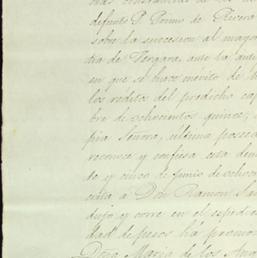 defunto P. Primo de Rivera
sobre la succesion al mayo
dia de Vergara, ante la anti
en que se hace merito de
los reditos del predicho cap
bra de ochocientos quince,
pira Señora, ultima posee
reconoce y confiesa esta deu
to y cinco de junio de ochoc
cuta á Don Ramon
dujo y corre en el espedie
dad de pesos ha promo
Doña Maria de los Ang